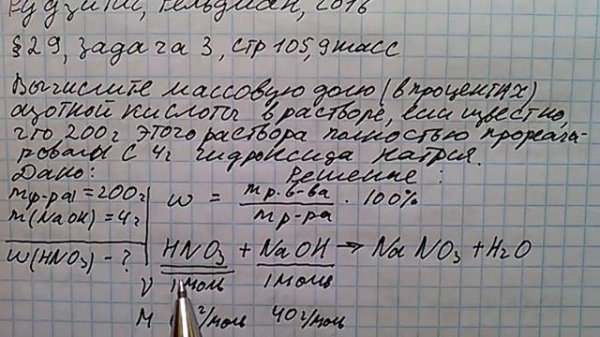 Рудзитис, Фельдман, 2016
§ 29, задача 3, стр 105, 9 класс
Вычислите массовую долю (в процентах)
азотной кислоты в растворе, если известно,
что 200г этого раствора полностью прореаги-
ровали с 4г гидроксида натрия.
Дано: Решение:
mр-ра = 200г ω = mр.в-ва / mр-ра · 100%
m(NaOH) = 4г
ω(HNO₃) - ? HNO₃ + NaOH → NaNO₃ + H₂O
ν 1 моль 1 моль
M г/моль 40 г/моль